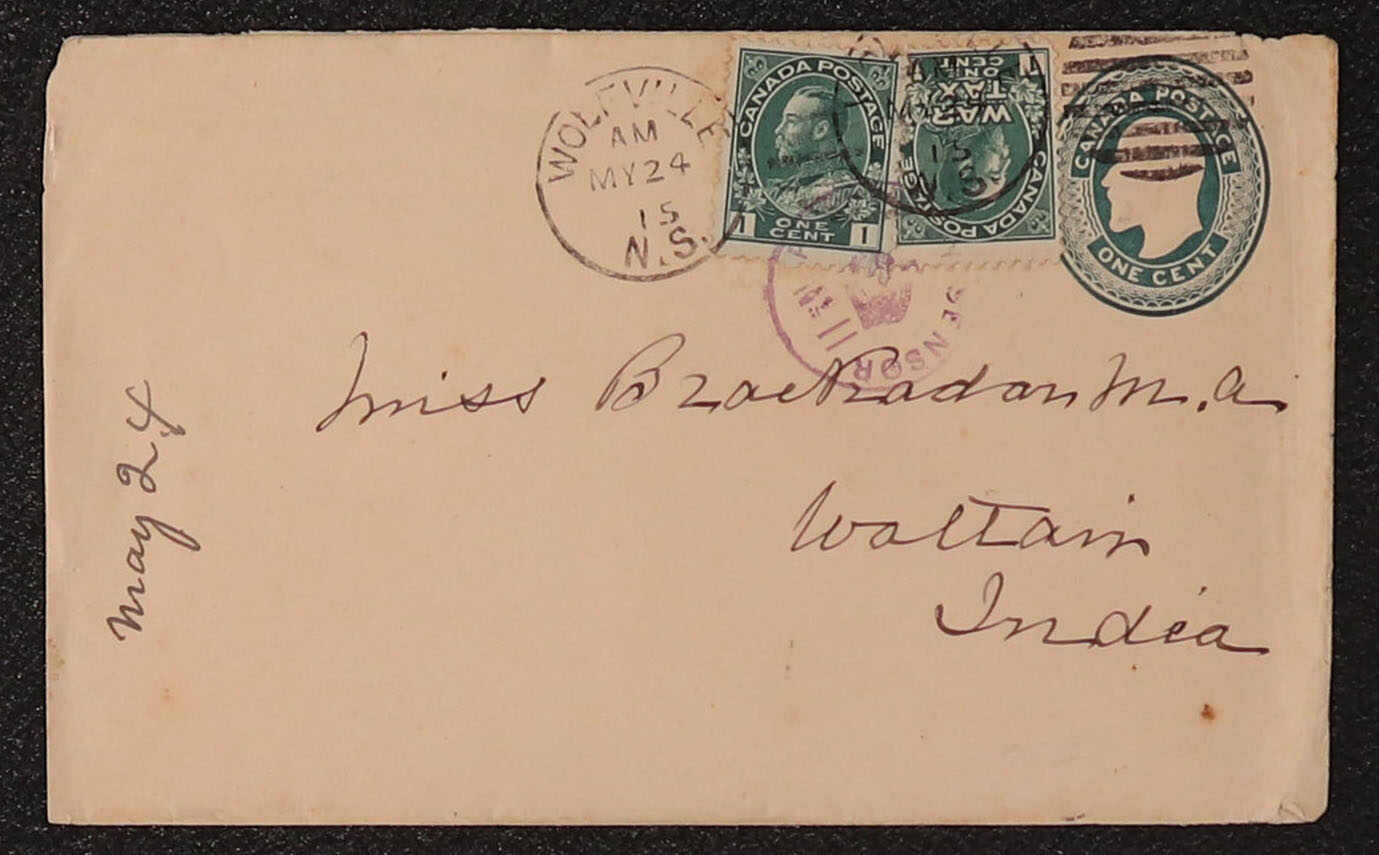 WOLFVILLE
AM
MY 24
15
N.S.
CANADA POSTAGE
1 ONE CENT 1
WAR
TAX
ONE
CENT
1
CANADA POSTAGE
MY 24
15
N.S.
CANADA POSTAGE
ONE CENT
CENSOR
Miss M.A.
Waltair
India
May 24